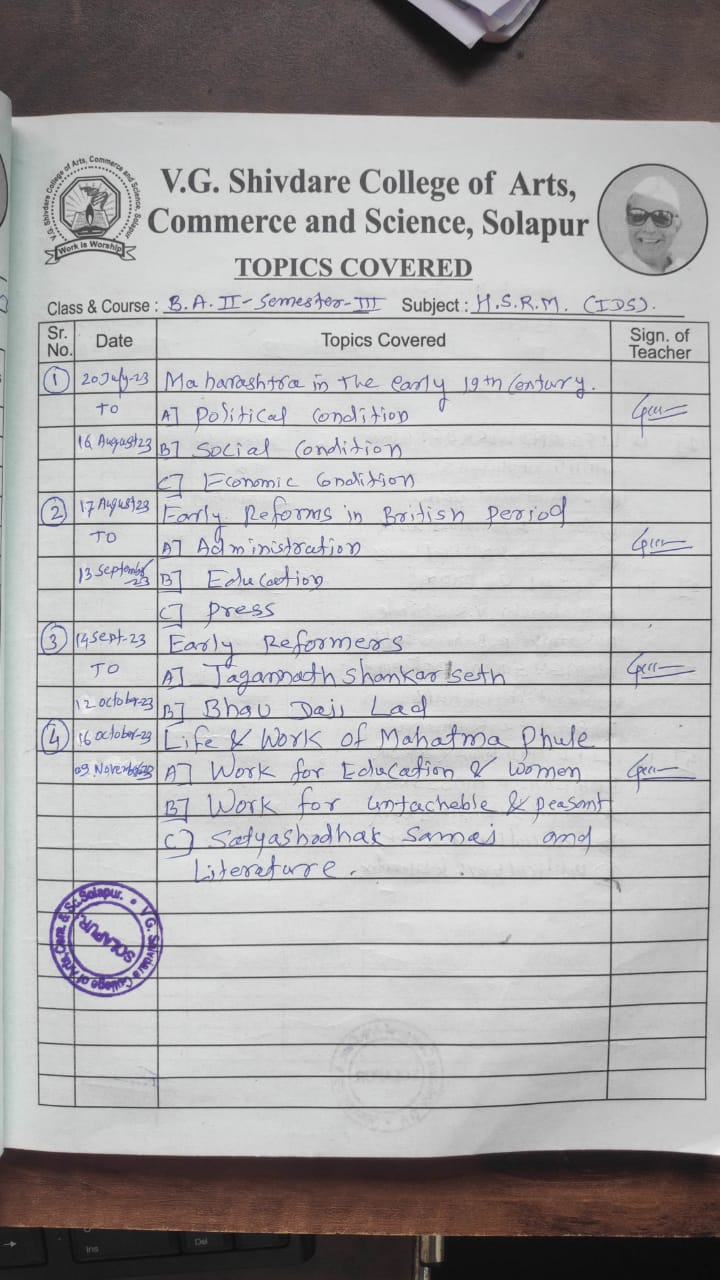 V.G. Shivdare College of Arts, Commerce and Science, Solapur
Work is Worship
V.G. Shivdare College of Arts,
Commerce and Science, Solapur
TOPICS COVERED
Class & Course : B.A. II - Semester - III Subject : H.S.R.M. (IDS).
Sr. No. Date Topics Covered Sign. of Teacher
1 20 July-23 Maharashtra in The early 19th Century.
TO A] Political Condition
16 August 23 B] Social Condition
C] Economic Condition
2 17 August 23 Early Reforms in British Period
TO A] Administration
13 September 23 B] Education
C] Press
3 14 Sept-23 Early Reformers
TO A] Jagannath Shankar Seth
12 october-23 B] Bhau Daji Lad
4 16 october-23 Life & Work of Mahatma Phule
09 November 23 A] Work for Education & Women
B] Work for untacheble & peasant
C] Satyashodhak Samaj and
Literature.
V.G. Shivdare College of Arts, Com. & Sc. Solapur.
SOLAPUR
Ins
Del